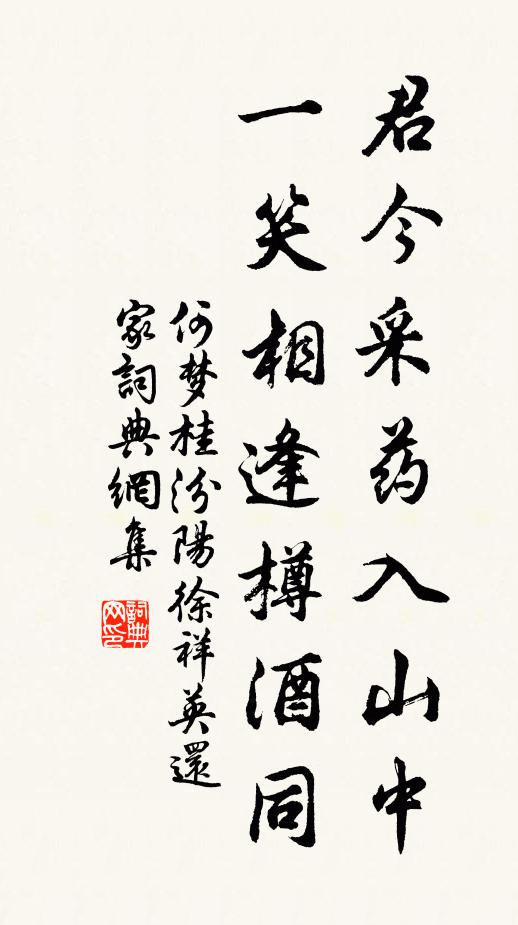 君今采药入山中
一笑相逢樽酒同
何梦桂汾陽徐祥英還
家詞典網集
詞典
网印